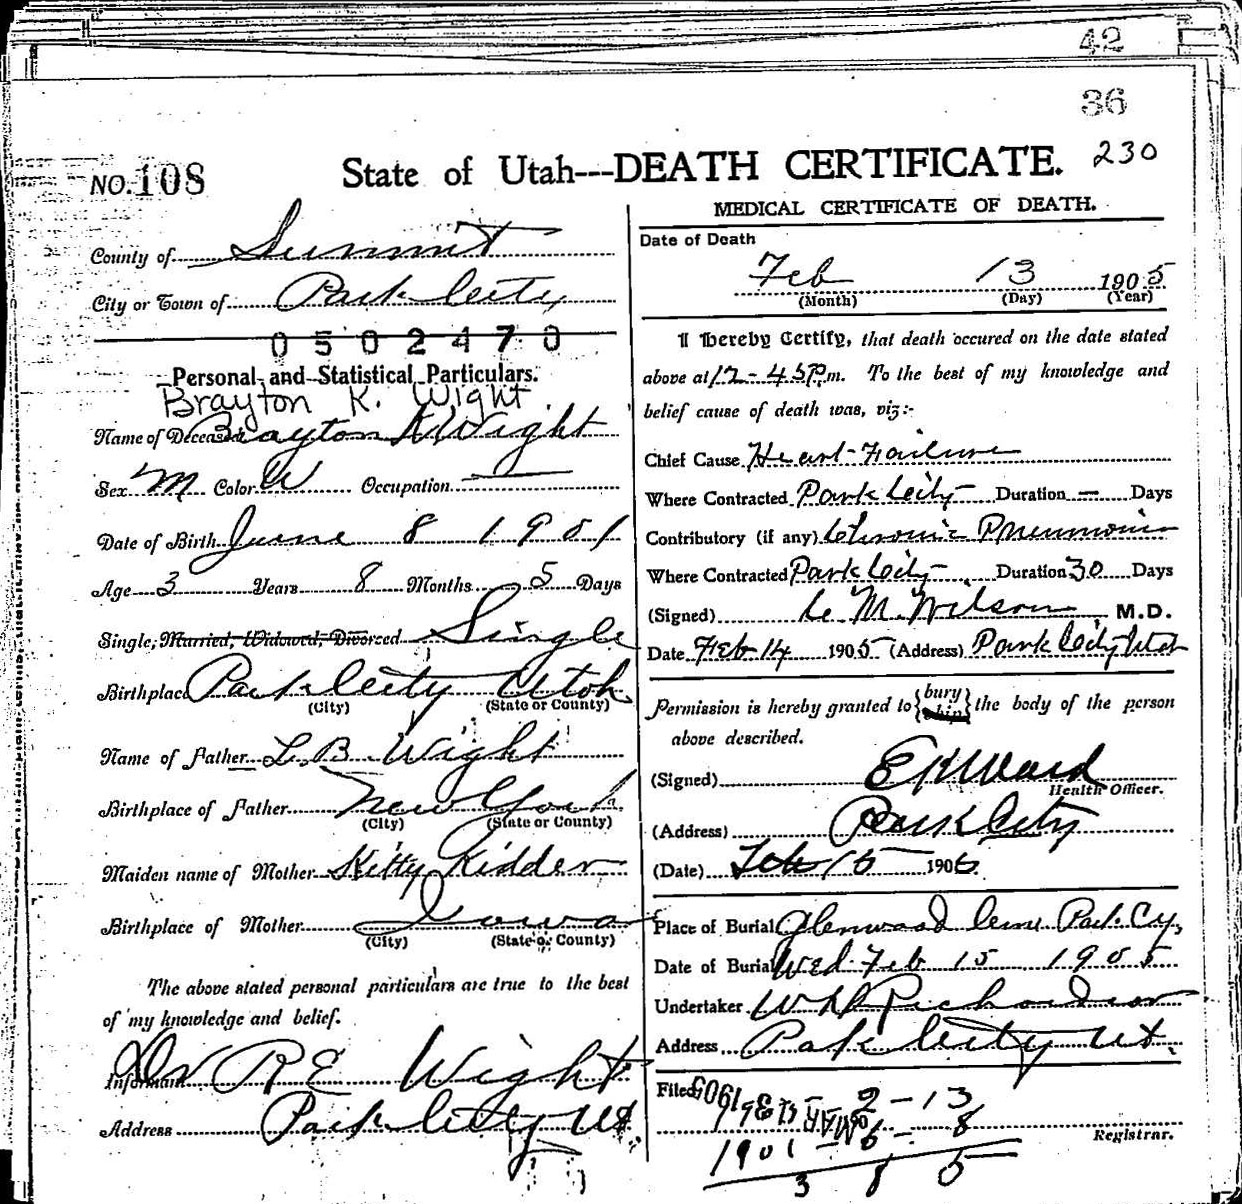 42
36
230
NO. 108
State of Utah---DEATH CERTIFICATE.
County of Summit
City or Town of Park City
0502470
Personal and Statistical Particulars.
Brayton K. Wight
Name of Deceased Brayton K Wight
Sex M Color W Occupation —
Date of Birth June 8 1901
Age 3 Years 8 Months 5 Days
Single, Married, Widowed, Divorced Single
Birthplace Park City Utah
(City) (State or County)
Name of Father L. B. Wight
Birthplace of Father New York
(City) (State or County)
Maiden name of Mother Kitty Kidder
Birthplace of Mother Iowa
(City) (State or County)
The above stated personal particulars are true to the best
of my knowledge and belief.
Informant Dr R E Wight
Address Park City Ut
MEDICAL CERTIFICATE OF DEATH.
Date of Death
Feb 13 1905
(Month) (Day) (Year)
I Hereby Certify, that death occured on the date stated
above at 12-45 P.m. To the best of my knowledge and
belief cause of death was, viz:-
Chief Cause Heart-Failure
Where Contracted Park City Duration — Days
Contributory (if any) Chronic Pneumonia
Where Contracted Park City Duration 30 Days
(Signed) C. M. Wilson M.D.
Date Feb 14 1905 (Address) Park City Utah
Permission is hereby granted to {bury ship} the body of the person
above described.
(Signed) E K Ward
Health Officer.
(Address) Park City
(Date) Feb 15 1905
Place of Burial Glenwood Cem. Park Cy,
Date of Burial Wed. Feb 15 1905
Undertaker Richardson
Address Park City Ut.
Filed MAR 1905
2-13
1901-6-8
Registrar.
3 8 5